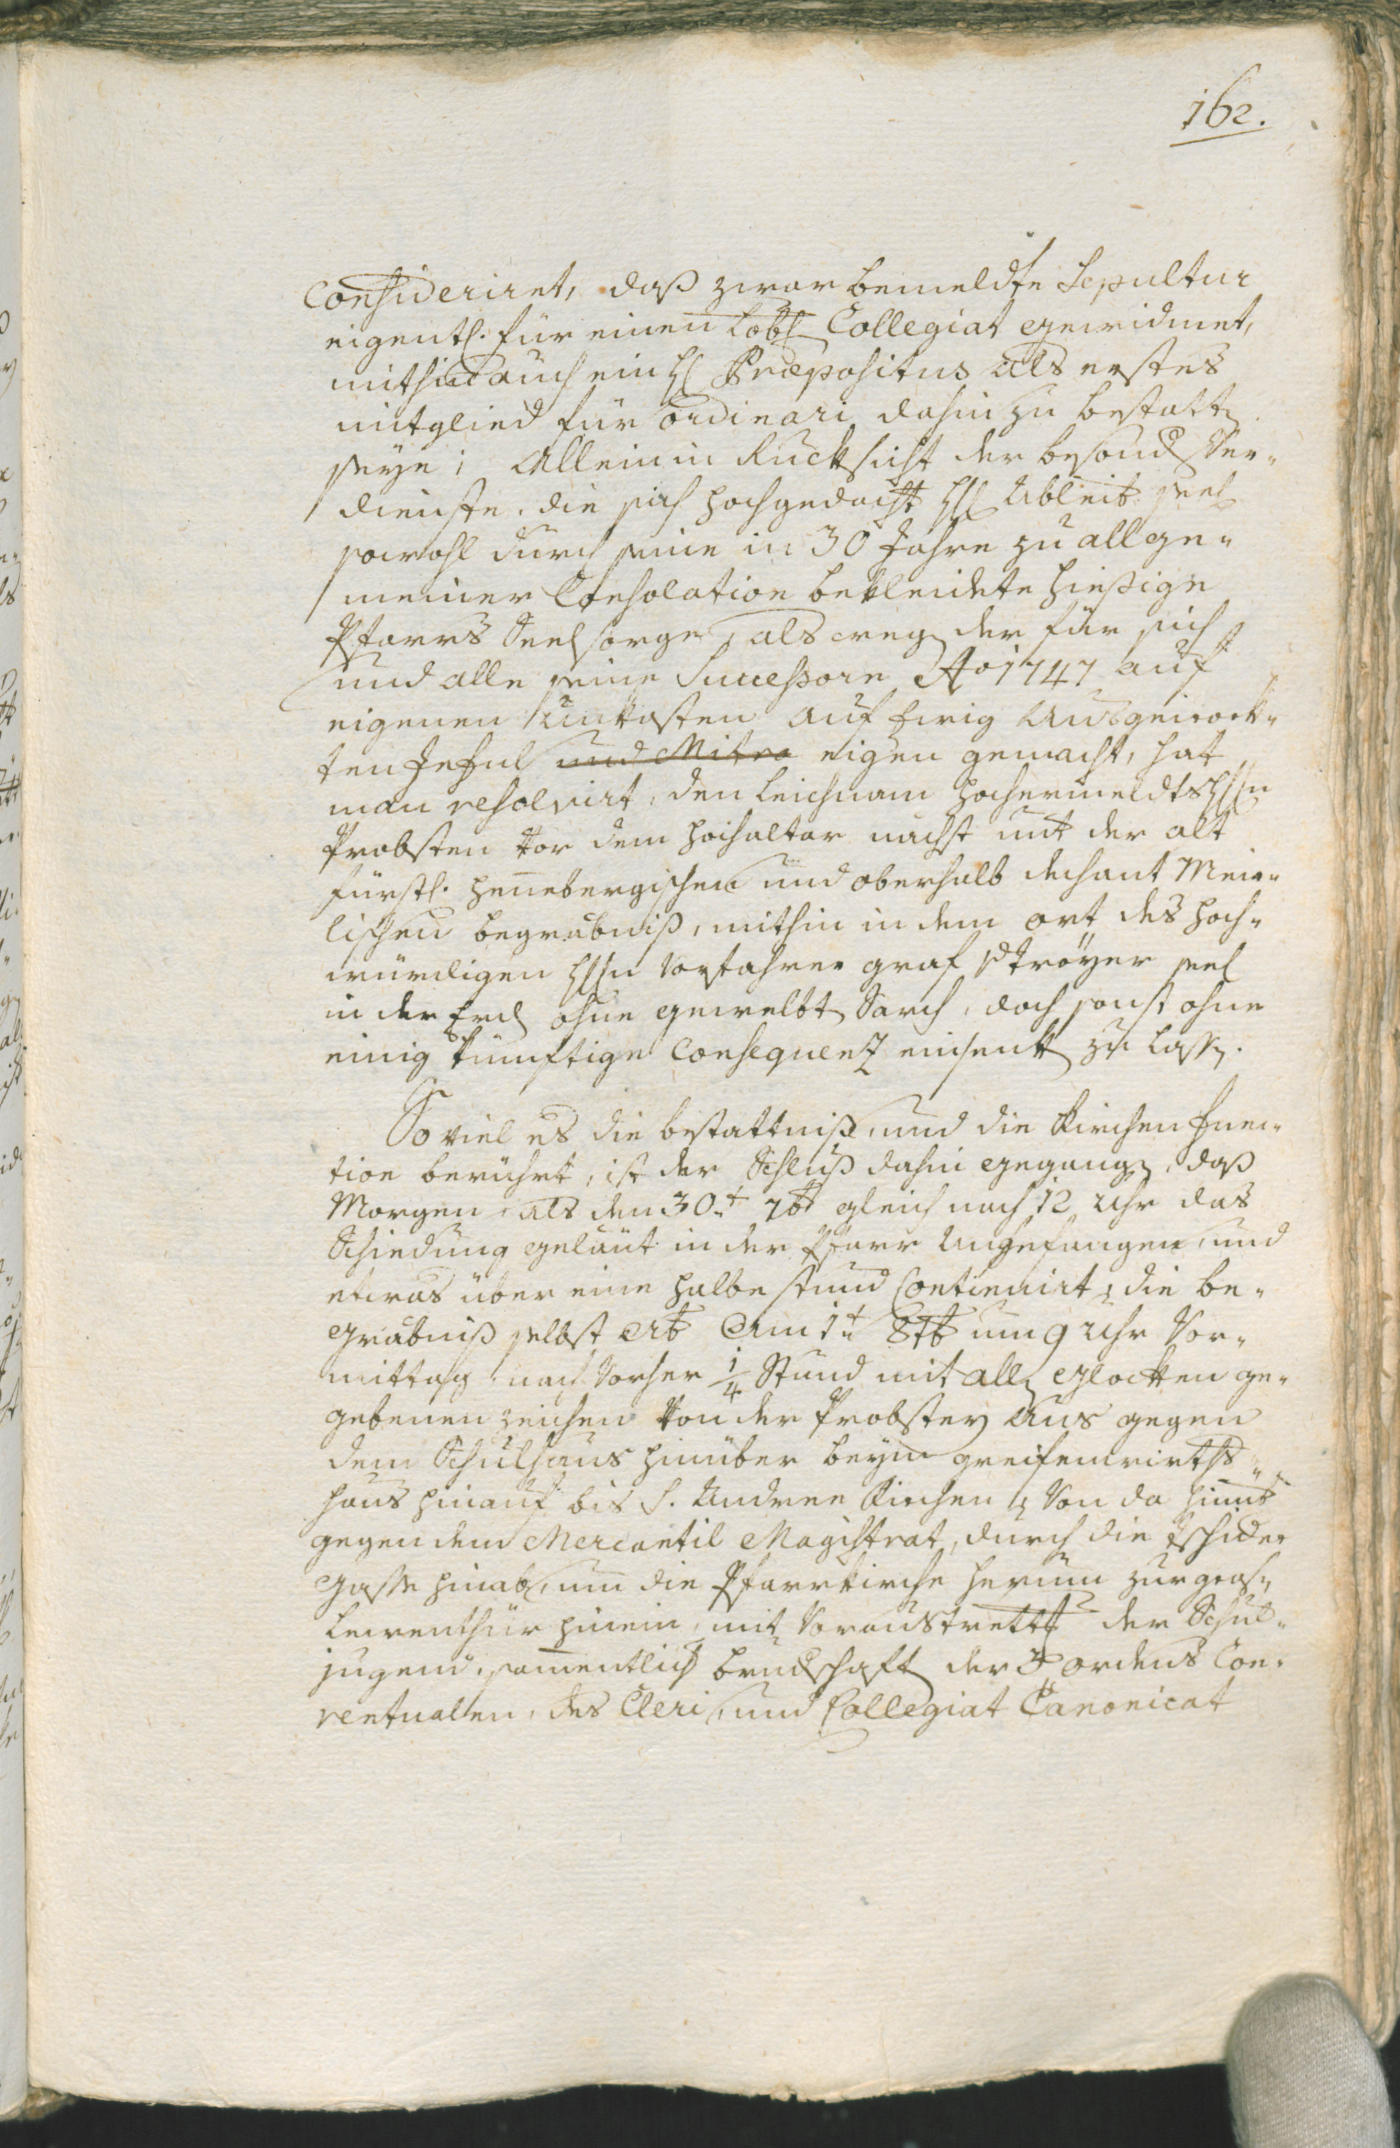 162.
consideriret, daß zwar bemeldte Sepultur
eigentl. für einen Lobl Collegiat gewidmet,
mithin auch ein H Præpositus als erstes
mitglied für ordinari dahin zu bestatt
seye; Allein in Rucksicht der besond Ver-
dienste, die sich hochgedacht H Ableib seel
sowohl durch seine in 30 Jahre zu allge-
meiner Consolation bekleidete hiesige
Pfarrs Seelsorge, als weg der für sich
und alle seine Successore Ao 1747 auf
eigenen Unkosten auf Ewig Ausgewirk-
ten Inful und Mitra eigen gemacht, hat
man resolvirt, den Leichnam hochermeldts Hn
Probsten vor dem hochaltar nächst unt der alt
fürstl. hennebergischen und oberhalb dechant Meir-
lischen begräbniß, mithin in dem ort des hoch-
würdigen Hn Vorfahrer graf Tröyer seel
in der Erd ohne gewelbt Sarch, doch sonst ohne
einig künftige Consequenz einsenk zu lass.
So viel es die bestattniß, und die Kirchen Func-
tion berührt, ist der Schluß dahin gegang, daß
Morgen als den 30t 7b gleich nach 12 Uhr das
Schiedung geläut in der Pfarr Angefangen, und
etwas über eine halbe stund Continuirt, die be-
gräbniß selbst Am 1t 8b um 9 Uhr Vor-
mittag nach Vorher 1/4 Stund mit all Glocken ge-
gebenen zeichen von der Probstey Aus gegen
dem Schulhaus hinüber beym greifenwirths-
haus hinauf bis S. Andree Kirchen, von da hinab
gegen dem Mercantil Magistrat, durch die
Gasse hinab, um die Pfarrkirche herum zur gros
Leuenthür hinein, mit Voraustrett der Schul-
jugend, samentlich brudschaft der 3 ordens Con-
ventualen, des Cleri, und Collegiat Canonicat